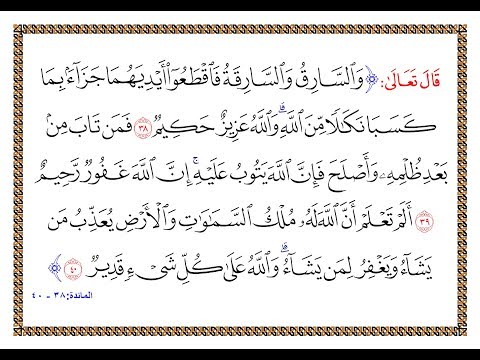 قَالَ تَعَالَىٰ: ﴿وَٱلسَّارِقُ وَٱلسَّارِقَةُ فَٱقْطَعُوٓا۟ أَيْدِيَهُمَا جَزَآءًۢ بِمَا
كَسَبَا نَكَٰلًا مِّنَ ٱللَّهِ ۗ وَٱللَّهُ عَزِيزٌ حَكِيمٌ ٣٨ فَمَن تَابَ مِنۢ
بَعْدِ ظُلْمِهِۦ وَأَصْلَحَ فَإِنَّ ٱللَّهَ يَتُوبُ عَلَيْهِ ۗ إِنَّ ٱللَّهَ غَفُورٌ رَّحِيمٌ
٣٩ أَلَمْ تَعْلَمْ أَنَّ ٱللَّهَ لَهُۥ مُلْكُ ٱلسَّمَٰوَٰتِ وَٱلْأَرْضِ يُعَذِّبُ مَن
يَشَآءُ وَيَغْفِرُ لِمَن يَشَآءُ ۗ وَٱللَّهُ عَلَىٰ كُلِّ شَىْءٍ قَدِيرٌ ٤٠﴾
المائدة: ٣٨ - ٤٠